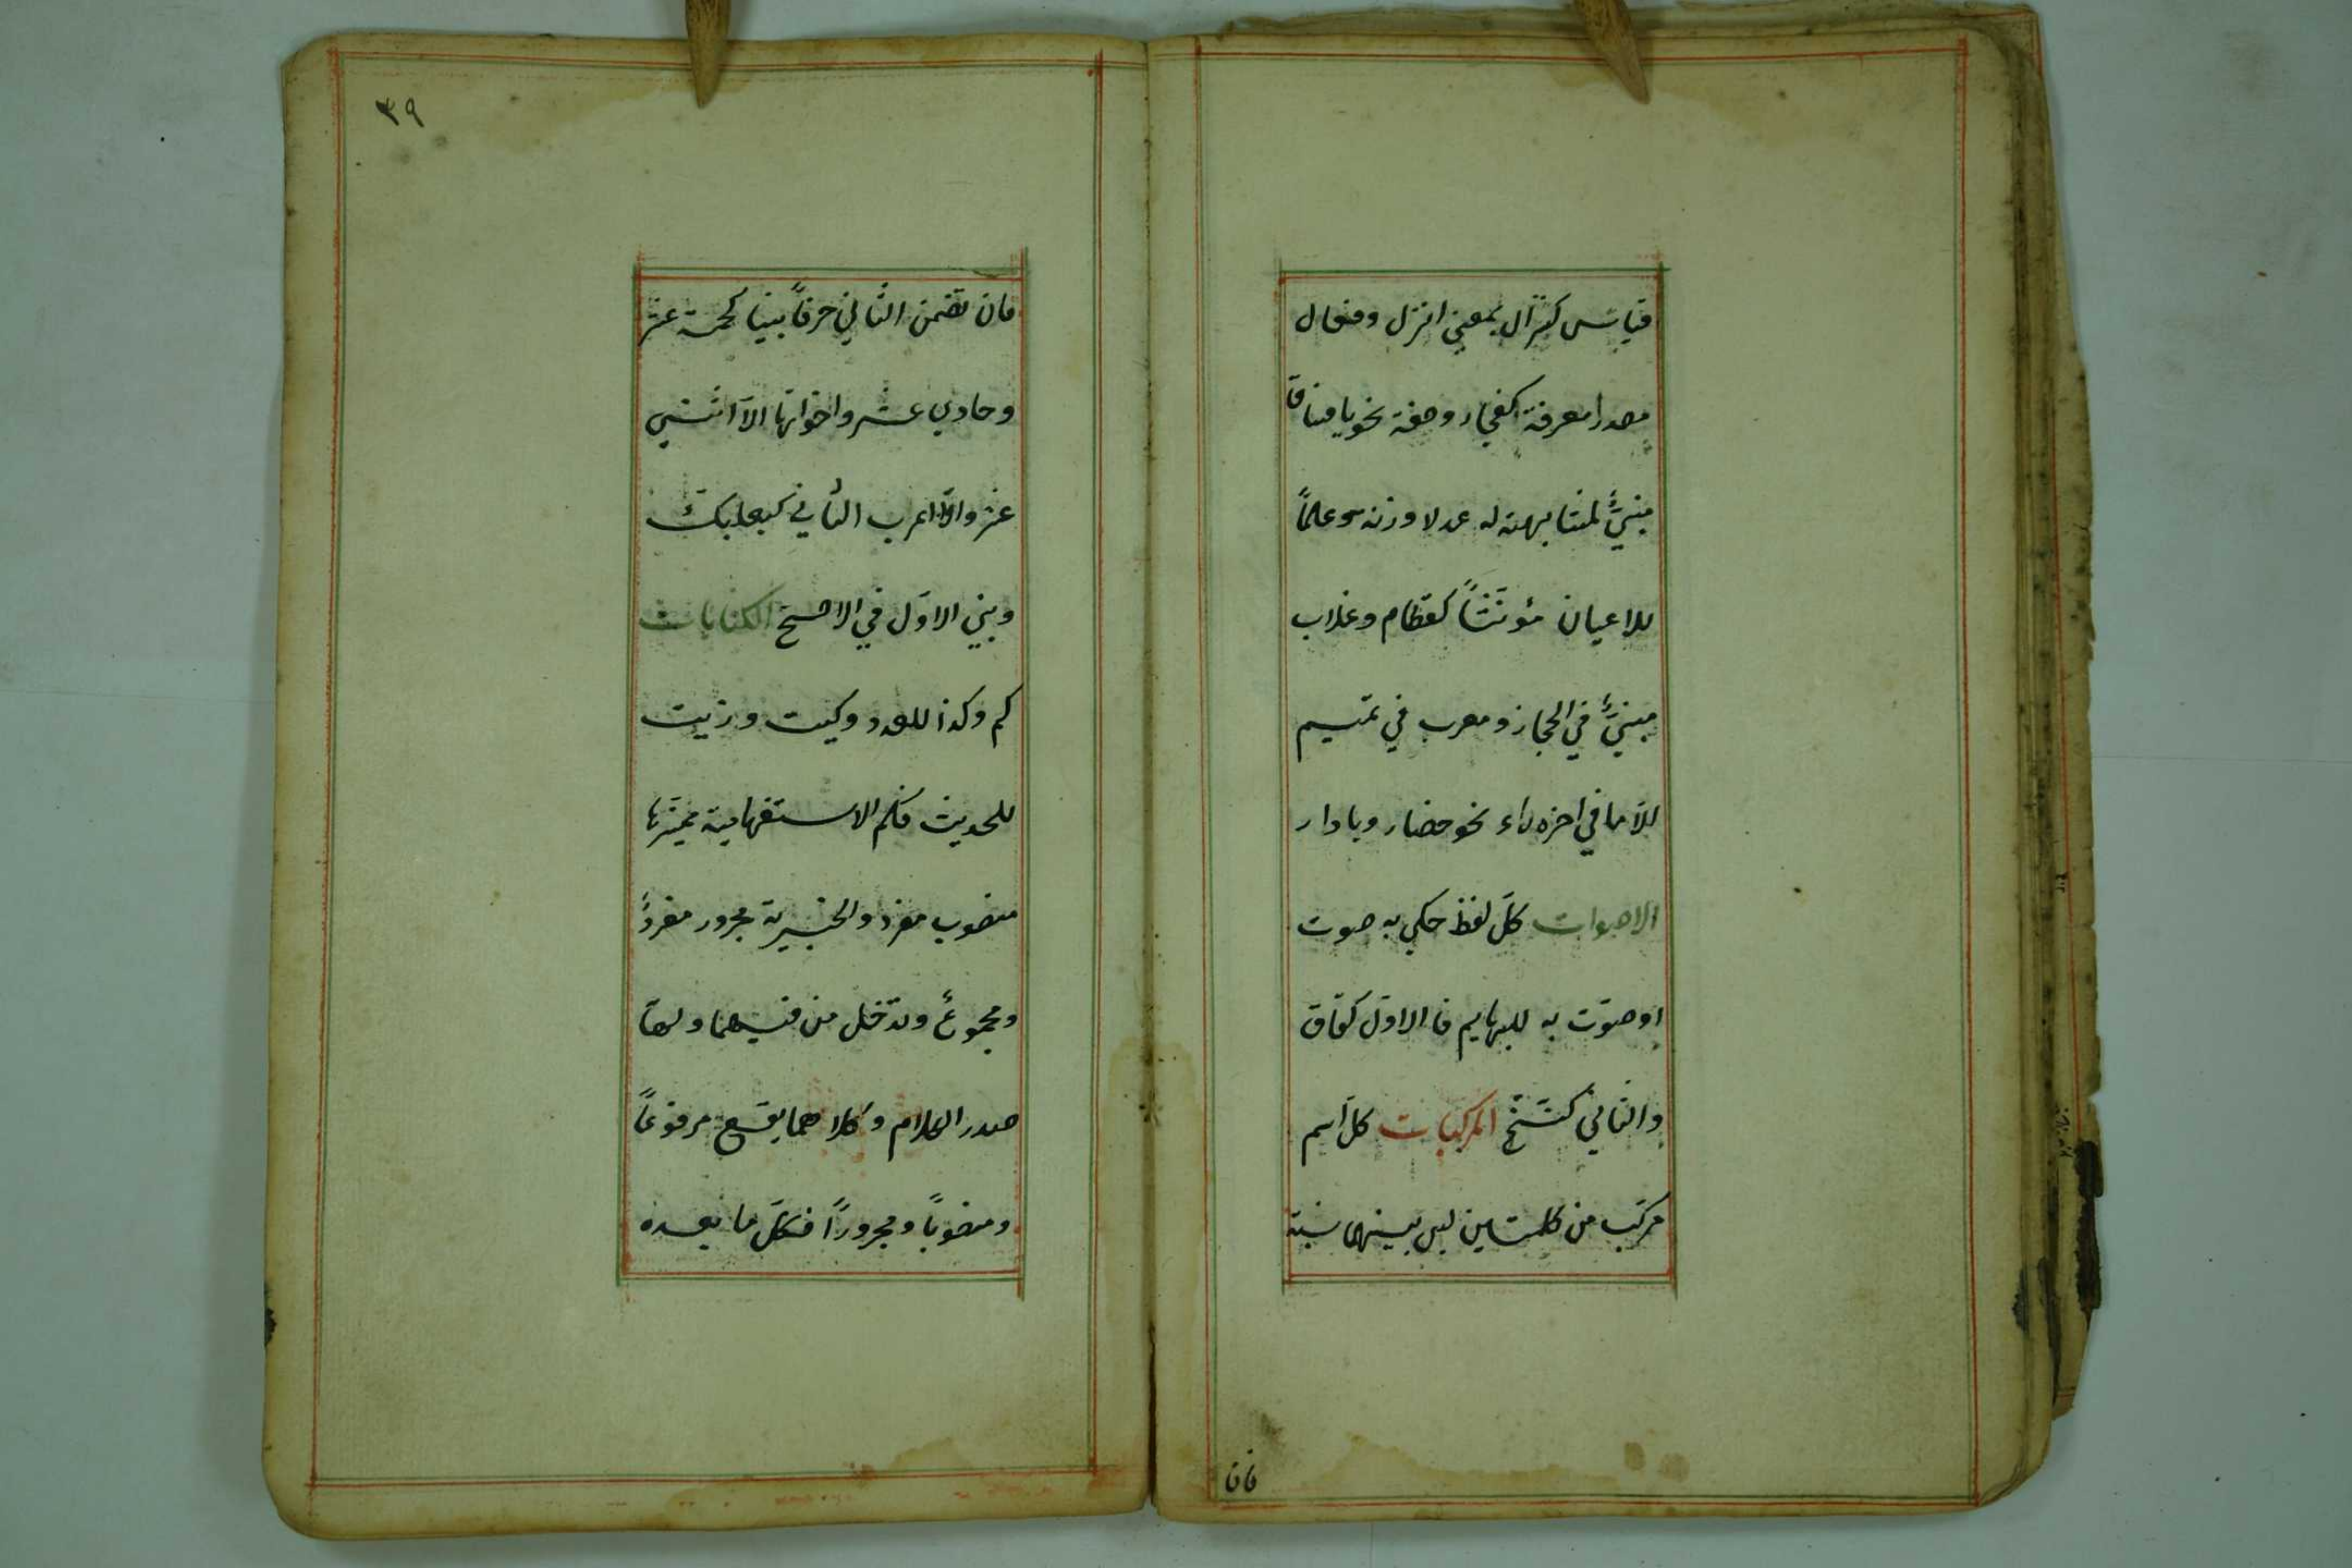 قياسٌ كنزال بمعنى انزل وفعال
مصدرا معرفة كفجار وصفة نحو يا فساق
مبنيٌّ لمشابهته له عدلا وزنه وعلماً
للاعيان مؤنثاً كقطام وغلاب
مبنيٌّ في الحجاز ومعرب في تميم
الّا ما في اخره راء نحو حضار وبادار
الاصوات كلّ لفظ حكي به صوت
او صوّت به للبهايم فالاوّل كغاق
والثاني كنخّ المركبات كلّ اسم
مركّب من كلمتين ليس بينهما نسبة
فان
٣٩
فان تضمن الثاني حرفاً بنيا كخمسة عشر
وحادي عشر واخواتها الّا اثني
عشر والّا اعرب الثاني كبعلبك
وبني الاوّل في الاصح الكنايات
كم وكذا للعدد وكيت وذيت
للحديث فكم الاستفهامية مميّزها
منصوب مفرد والخبرية مجرور مفردٌ
ومجموعٌ وتدخل من فيهما ولهما
صدر الكلام وكلاهما يقع مرفوعاً
ومنصوباً ومجروراً فكلّ ما بعده